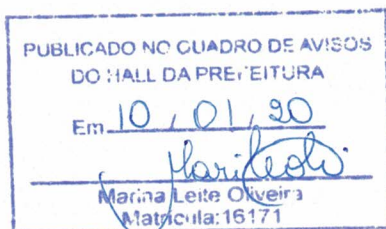 PUBLICADO NO QUADRO DE AVISOS
DO HALL DA PREFEITURA
Em 10 / 01 / 20
Marina Leite Oliveira
Matrícula:16171